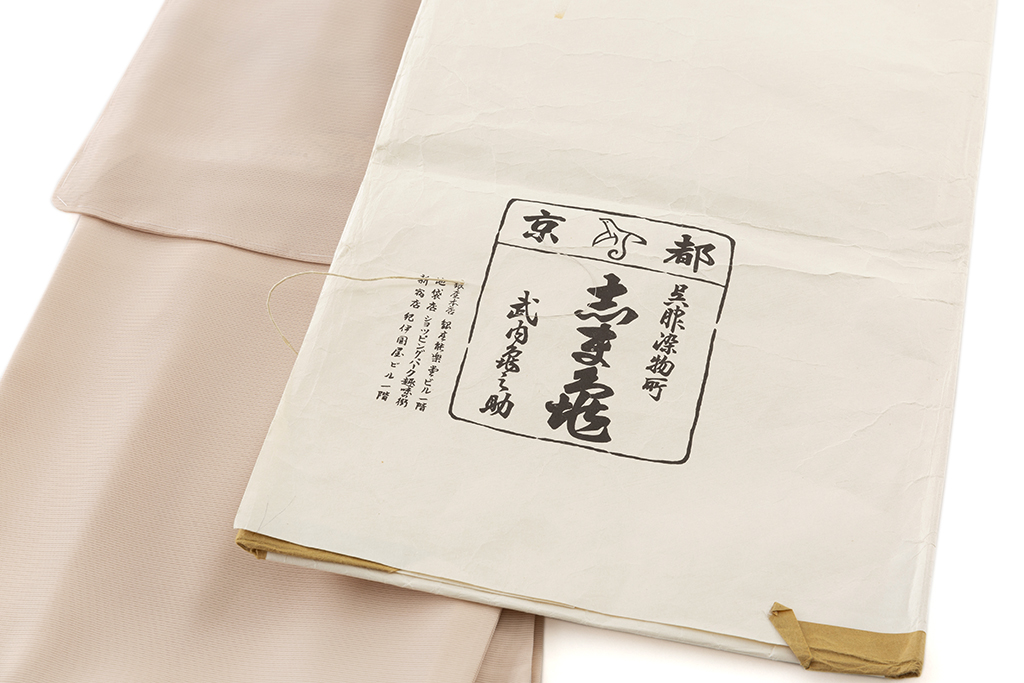 京都
呉服染物所
志ま亀
武内亀之助
銀座本店 銀座能楽堂ビル一階
池袋店 ショッピングパーク趣味街
新宿店 紀伊国屋ビル一階